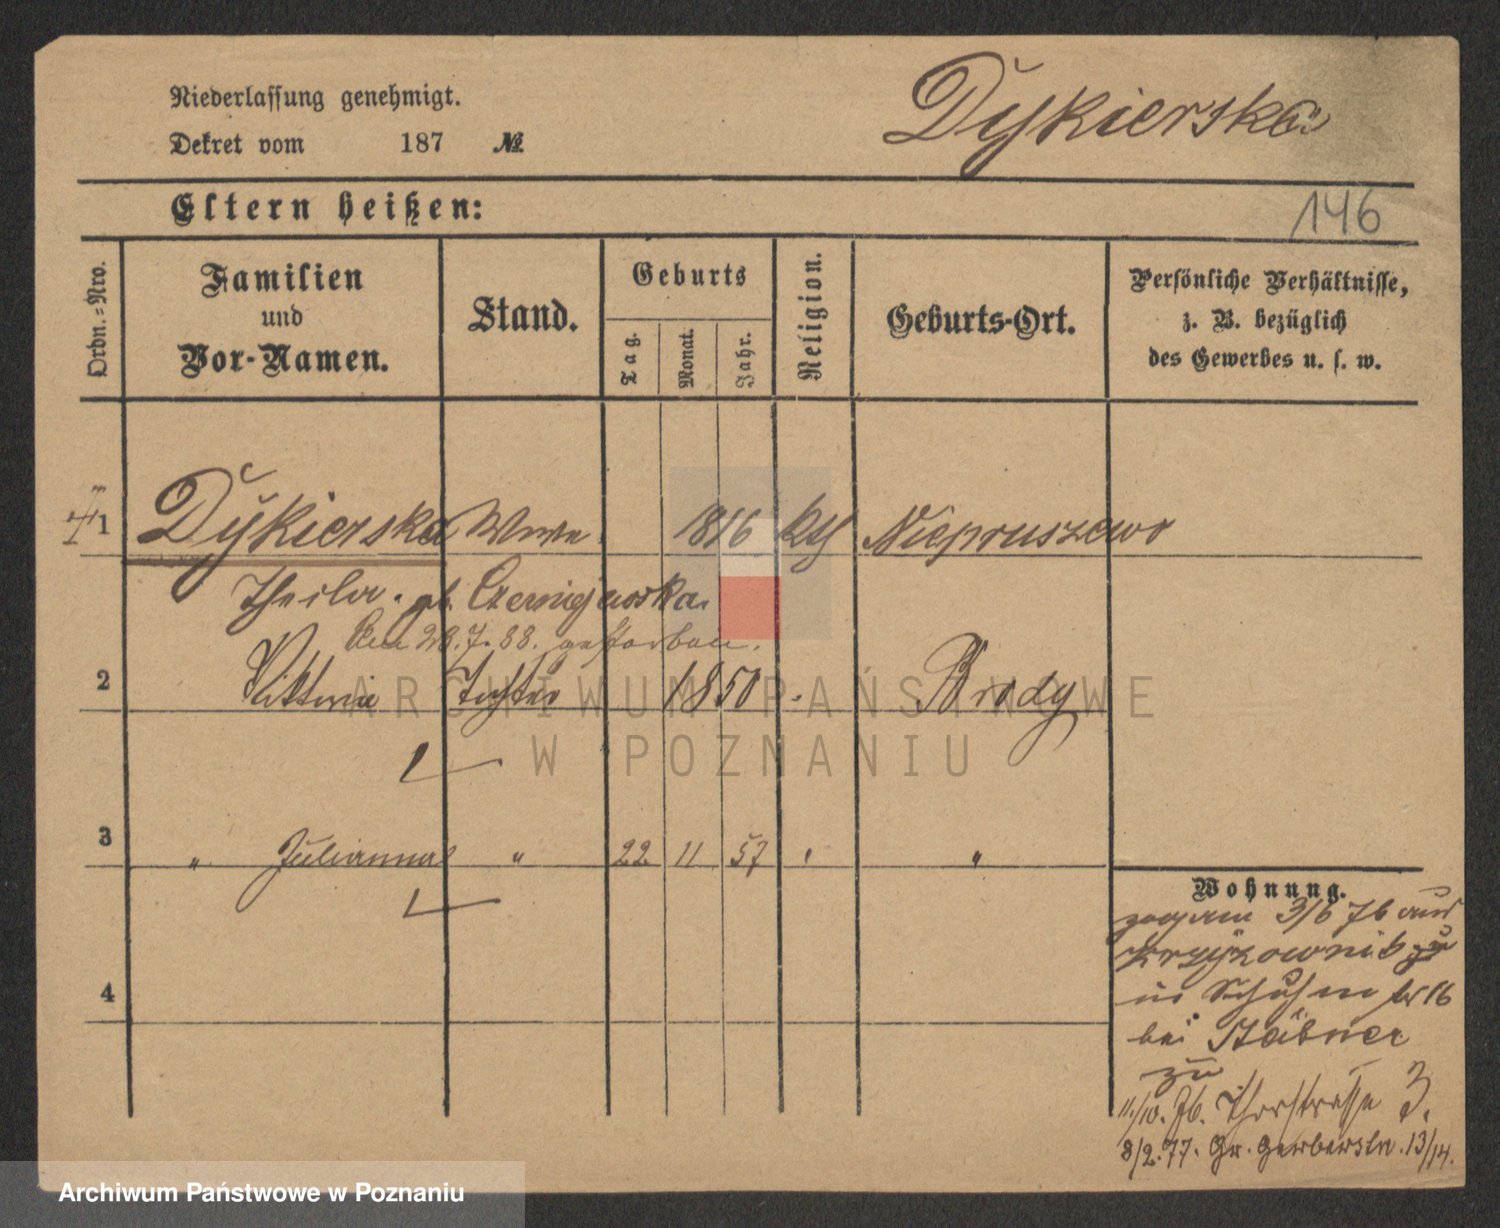 Niederlassung genehmigt.
Dekret vom 187 №
Dykierska
146
Eltern heißen:
Ordn.=Nro.
Familien
und
Vor-Namen.
Stand.
Geburts
Tag.
Monat.
Jahr.
Religion.
Geburts-Ort.
Persönliche Verhältnisse,
z. B. bezüglich
des Gewerbes u. s. w.
1 Dykierska Wwe 1816 Kth Niepruszewo
Thecla. gb. Czerniejewska.
Am 28.7.88. gestorben.
2 Viktoria Tochter 1850 Brody
3 " Julianna " 22 11 57 "
4
Wohnung.
zog am 3/6 76 aus
Krzyzownik zu
in
bei Stäbner
zu
11./10. 76. Thorstrasse 3.
8/2.77. Gr. Gerberstr. 13/14.
ARCHIWUM PAŃSTWOWE
W POZNANIU
Archiwum Państwowe w Poznaniu